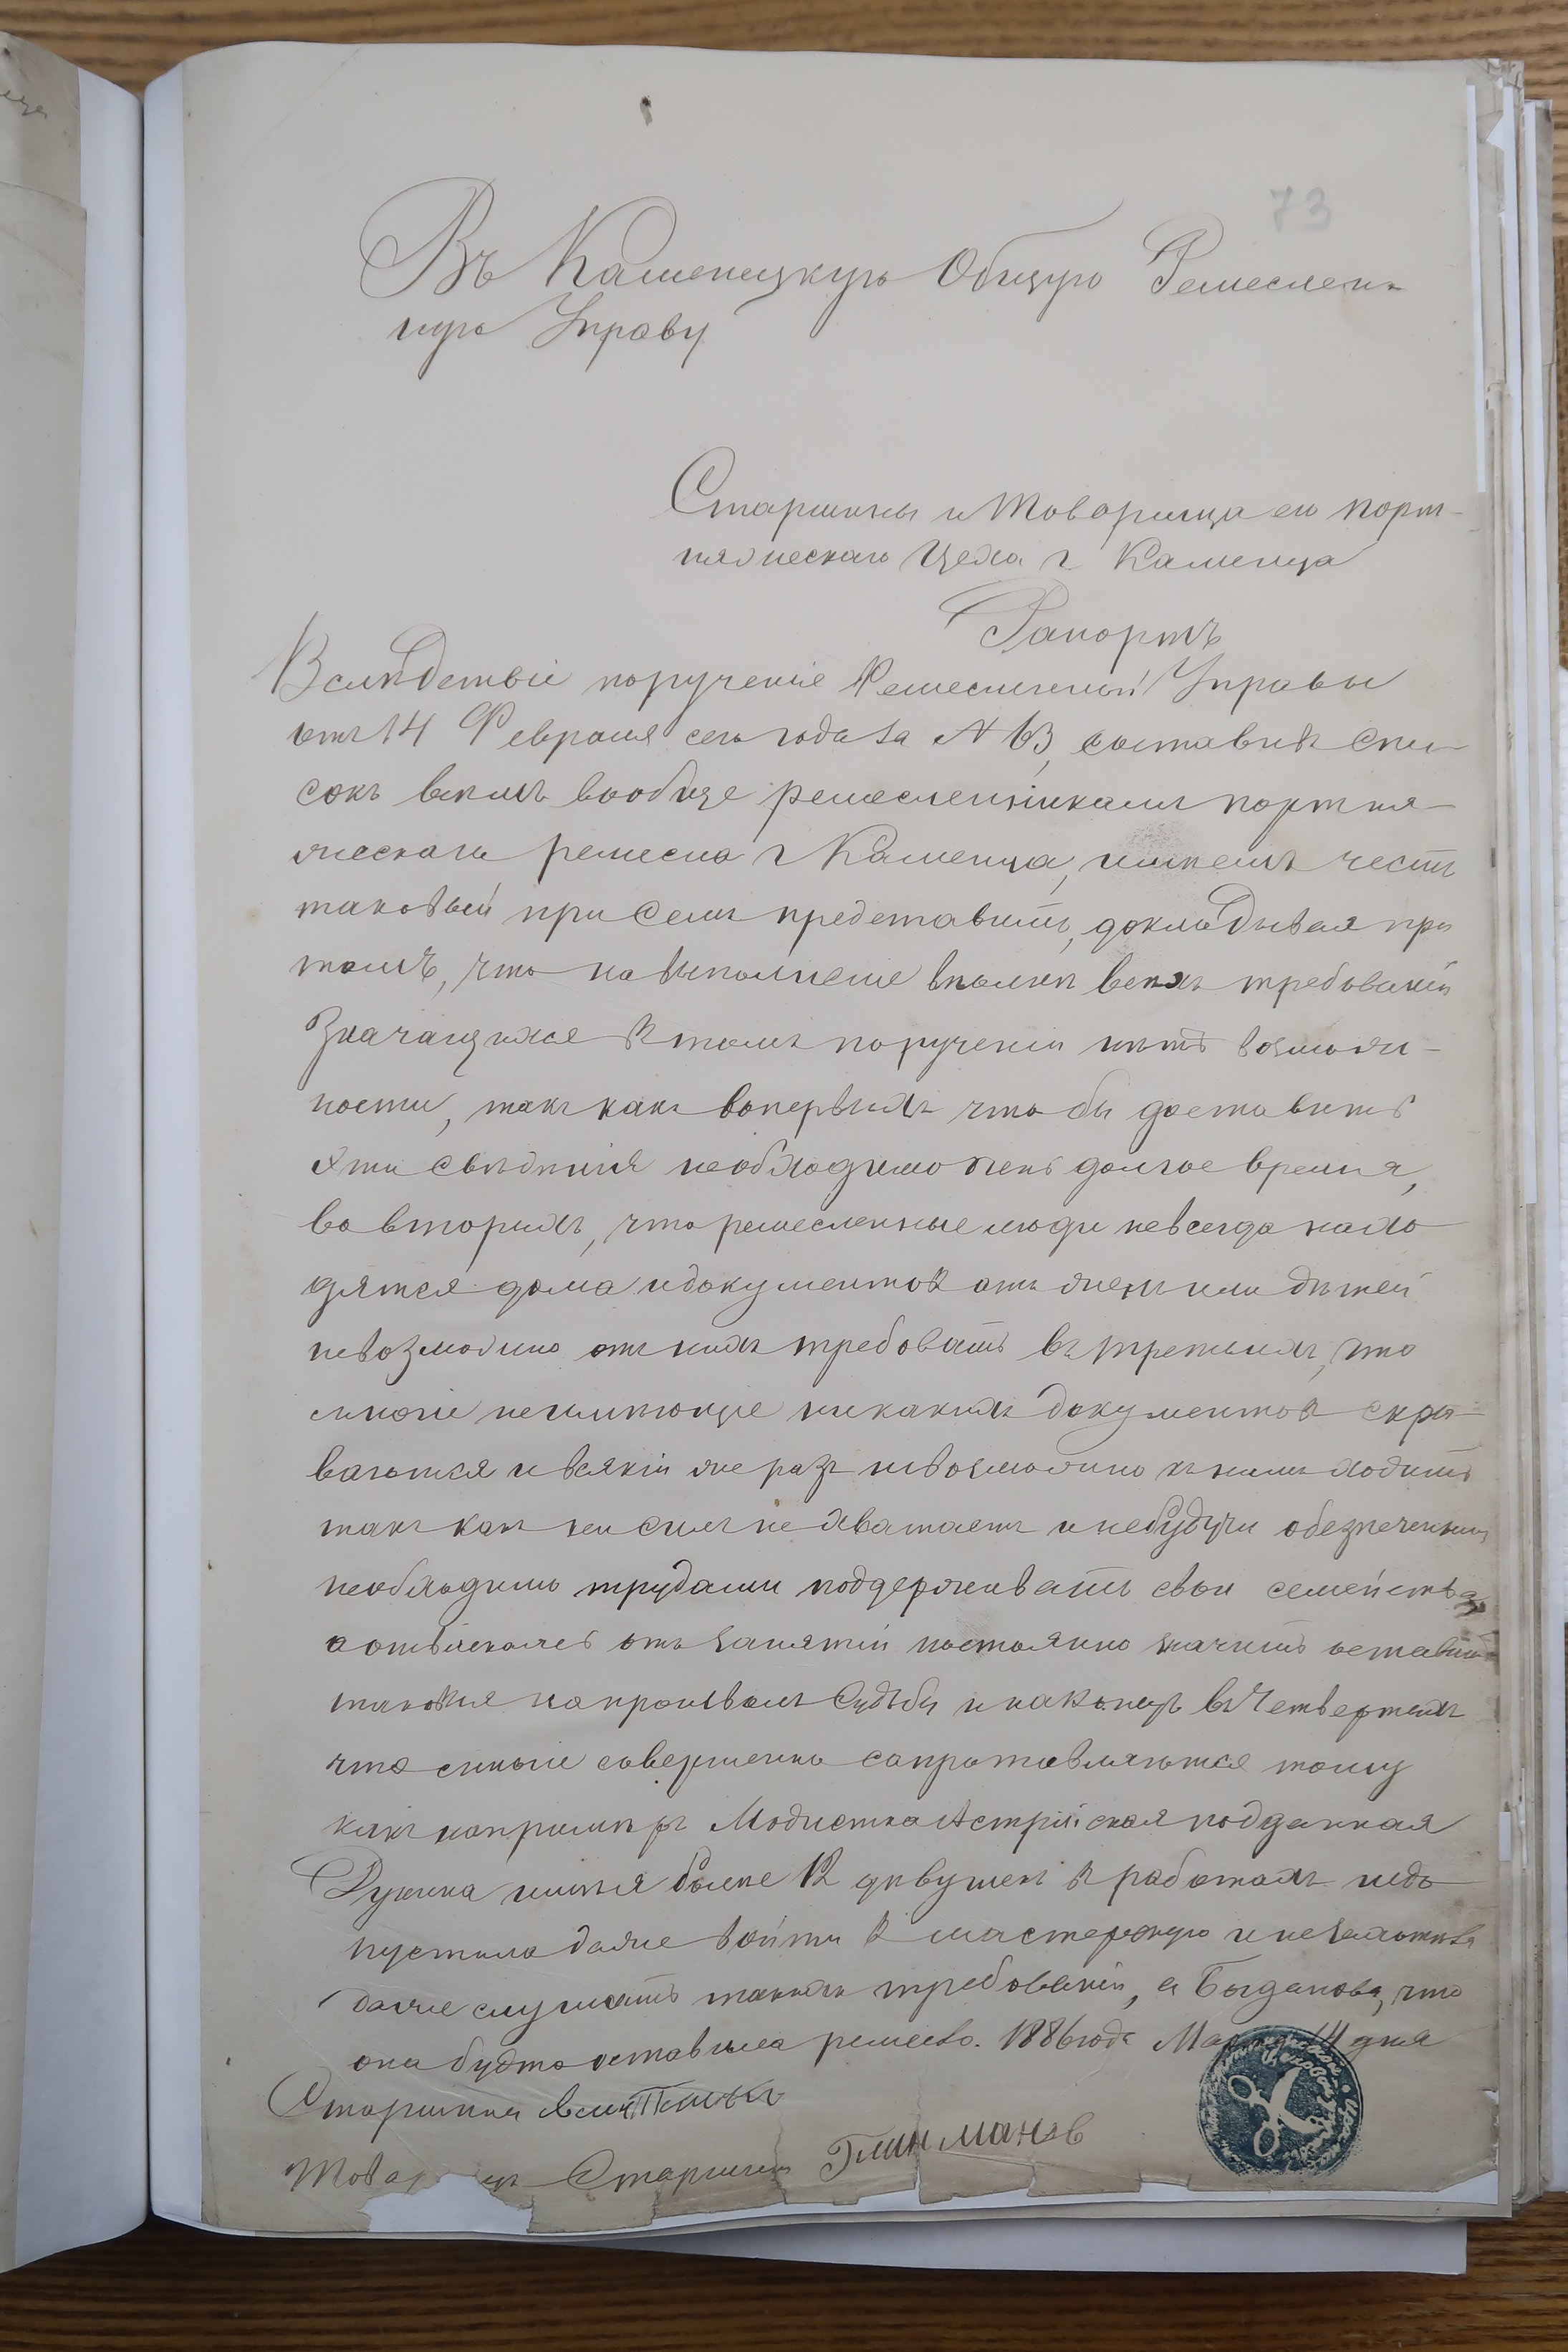 73
Въ Каменецкую Общую Ремеслен-
ную Управу
Старшины и Товарища его порт-
няжескаго Цеха г Каменца
Рапортъ
Вслѣдствіе порученіе Ремесленной Управы
отъ 14 Февраля сего года за № 63, составивъ Спи-
сокъ всѣмъ вообще ремесленникамъ портня-
жескаго ремесла г Каменца, имѣемъ честь
таковый при семъ представить, докладывая при
томъ, что на выполненіе вполнѣ всѣхъ требованій
значащихся въ томъ порученіи нѣтъ возмож-
ности, такъ какъ вопервыхъ что бы доставить
эти свѣдѣнія необходимо очень долгое время,
во вторыхъ, что ремесленные люди невсегда нахо-
дятся дома и документовъ отъ женъ или дѣтей
невозможно отъ нихъ требовать въ третьихъ, что
многіе неимѣющіе никакихъ документовъ скры-
ваются и всякій же разъ невозможно къ нимъ ходить
такъ какъ ни силъ не хватаетъ и небудучи обезпеченны
необходимо трудами поддерживать свои семейства
а отвлекаясь отъ занятій постоянно значитъ оставить
таковыя на произволъ Судьбы и наконецъ въ Четвертыхъ
что многіе совершенно сапротовляются тому
какъ напримѣръ Модистка Астрійская подданная
Ружика имѣя болѣе 12 дѣвушекъ въ работахъ недо-
пустила даже войти въ мастерскую и незахотѣла
даже слушать такихъ требованій, а Богданова, что
она будто оставила ремесло. 1886 года Марта 14 дня
Старшина
Товар щъ Старшины Глинманъ